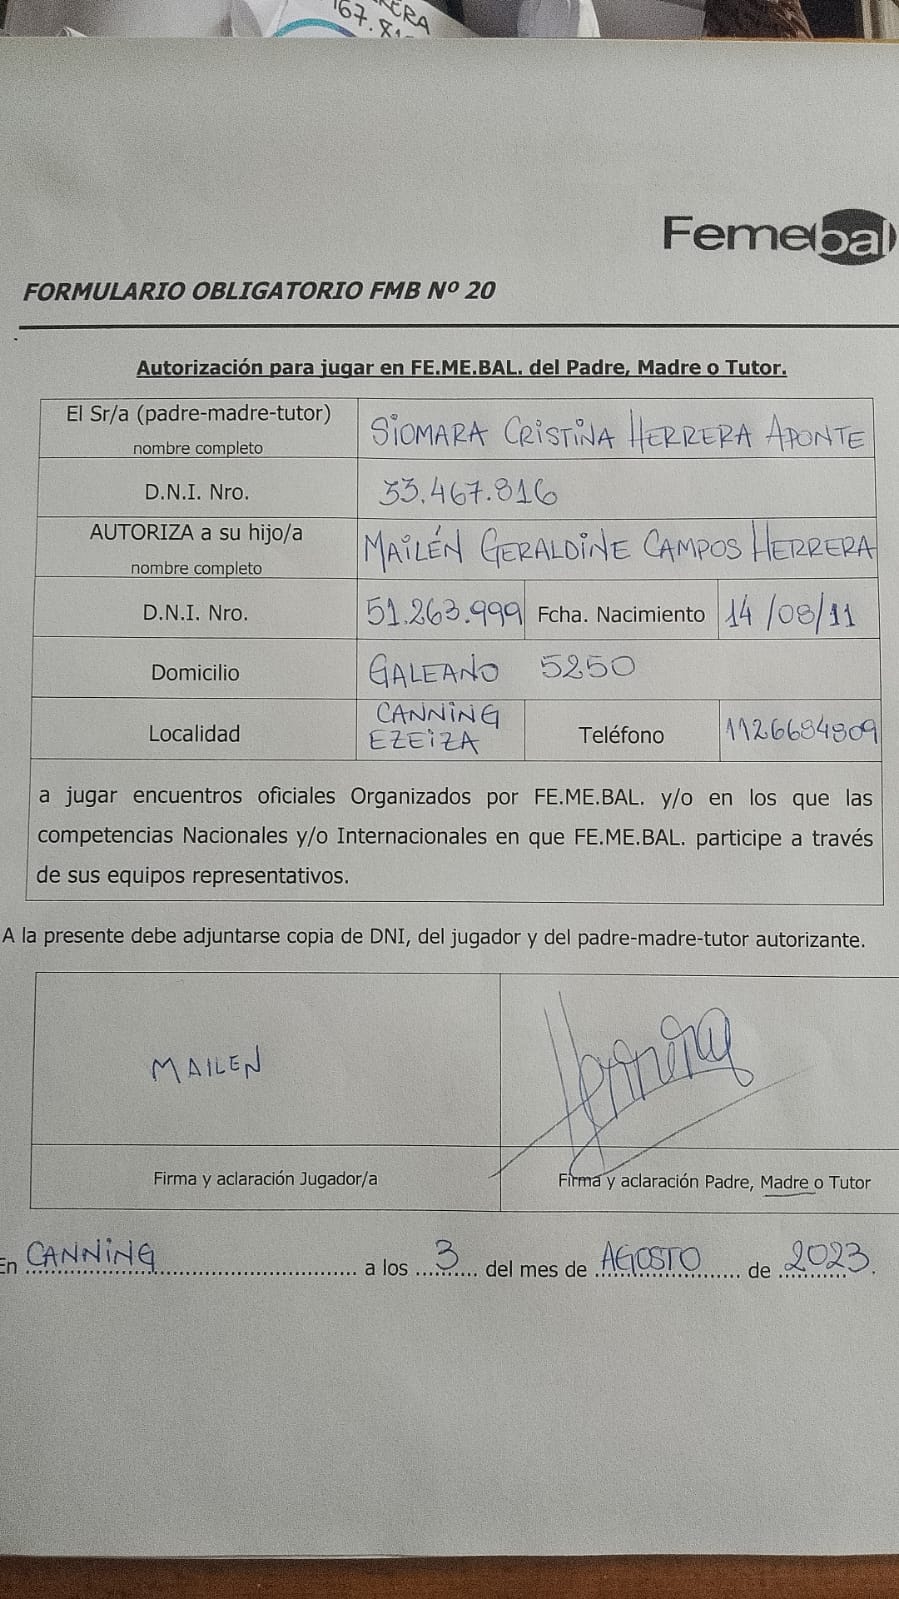 RERA
167.81
Femebal
FORMULARIO OBLIGATORIO FMB Nº 20
Autorización para jugar en FE.ME.BAL. del Padre, Madre o Tutor.
El Sr/a (padre-madre-tutor) SIOMARA CRISTINA HERRERA APONTE
nombre completo
D.N.I. Nro. 33.467.816
AUTORIZA a su hijo/a MAILÉN GERALDINE CAMPOS HERRERA
nombre completo
D.N.I. Nro. 51.263.999 Fcha. Nacimiento 14/08/11
Domicilio GALEANO 5250
Localidad CANNING EZEIZA Teléfono 1126684809
a jugar encuentros oficiales Organizados por FE.ME.BAL. y/o en los que las
competencias Nacionales y/o Internacionales en que FE.ME.BAL. participe a través
de sus equipos representativos.
A la presente debe adjuntarse copia de DNI, del jugador y del padre-madre-tutor autorizante.
MAILEN Herrera
Firma y aclaración Jugador/a Firma y aclaración Padre, Madre o Tutor
En CANNING a los 3 del mes de AGOSTO de 2023.